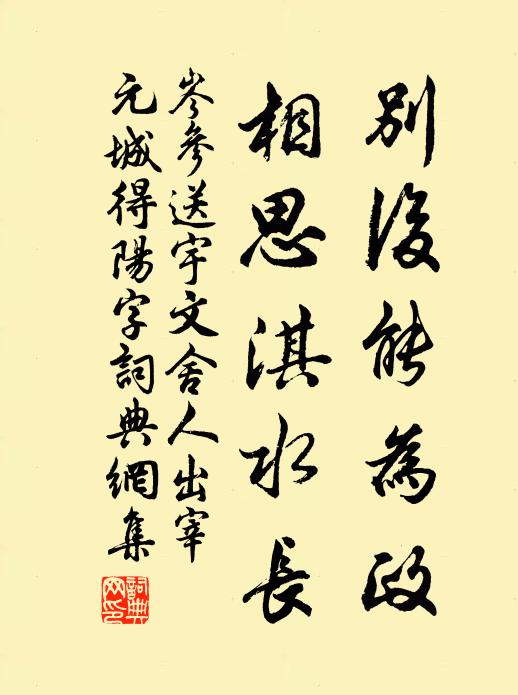 別後能為政
相思淇水長
岑參送宇文舍人出宰
元城得陽字詞典網集
詞典
网印